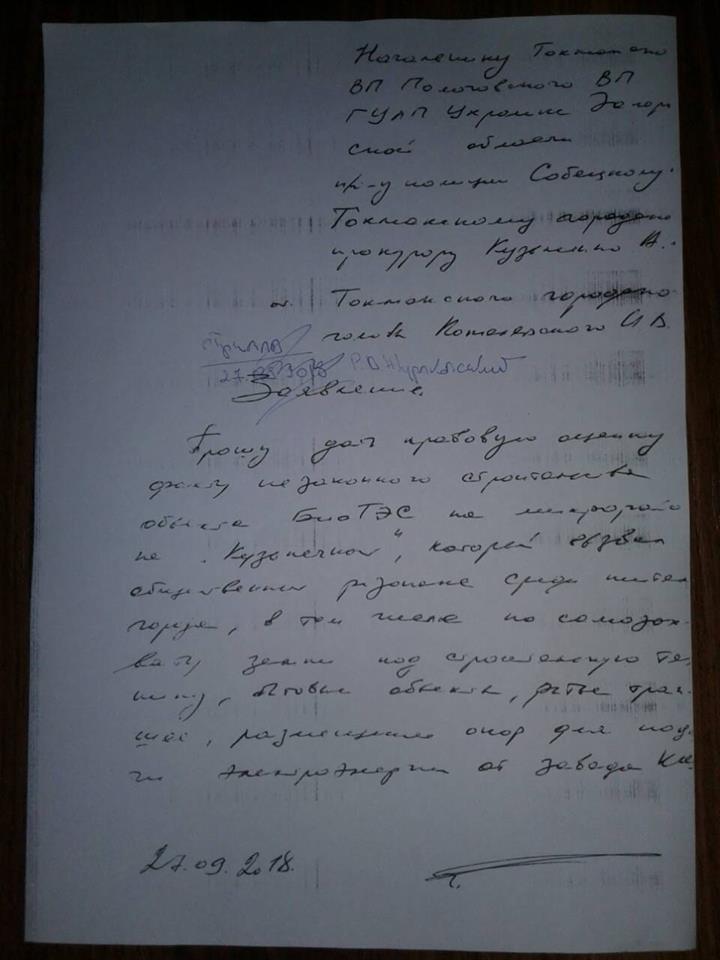 Начальнику Токмакско
ВП Пологовского ВП
ГУНП Украины Запор
ской области
п/п-у полиции Собецкому.
Токмакскому городско
прокурору Кузьменко А.
от Токмакского городско
головы Котелевского И.В.
27.09.2018 Р.В.
Заявление.
Прошу дать правовую оценку
факту незаконного строительства
объекта БиоТЭС на микрорайо
не "Кузнечном", который вызвал
общественный резонанс среди жител
города, в том числе по самозах-
вату земли под строительную тех
нику, бытовые объекты, рытье тран
шеи, размещение опор для пода
чи электроэнергии от завода
27.09.2018.